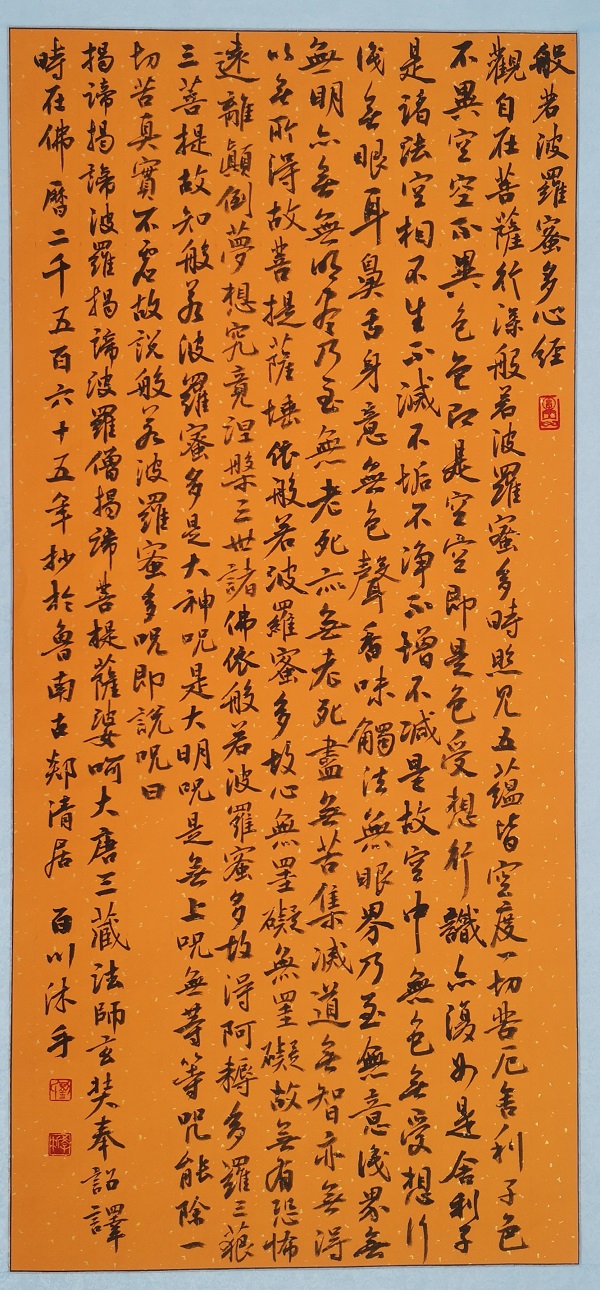 般若波羅蜜多心經
觀自在菩薩行深般若波羅蜜多時照見五蘊皆空度一切苦厄舍利子色
不異空空不異色色即是空空即是色受想行識亦復如是舍利子
是諸法空相不生不滅不垢不淨不增不減是故空中無色無受想行
識無眼耳鼻舌身意無色聲香味觸法無眼界乃至無意識界無
無明亦無無明盡乃至無老死亦無老死盡無苦集滅道無智亦無得
以無所得故菩提薩埵依般若波羅蜜多故心無罣礙無罣礙故無有恐怖
遠離顛倒夢想究竟涅槃三世諸佛依般若波羅蜜多故得阿耨多羅三藐
三菩提故知般若波羅蜜多是大神呪是大明呪是無上呪無等等呪能除一
切苦真實不虛故說般若波羅蜜多呪即說呪曰
揭諦揭諦波羅揭諦波羅僧揭諦菩提薩婆呵大唐三藏法師玄奘奉詔譯
時在佛曆二千五百六十五年抄於魯南古郯清居 百川沐手